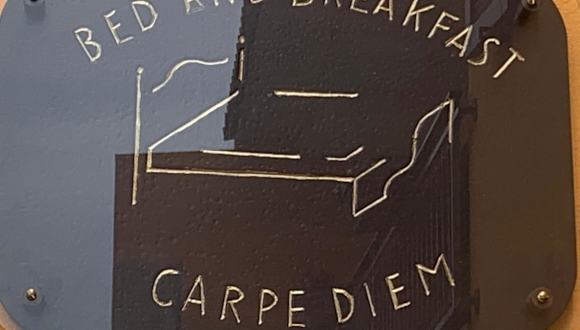 BED AND BREAKFAST
CARPE DIEM